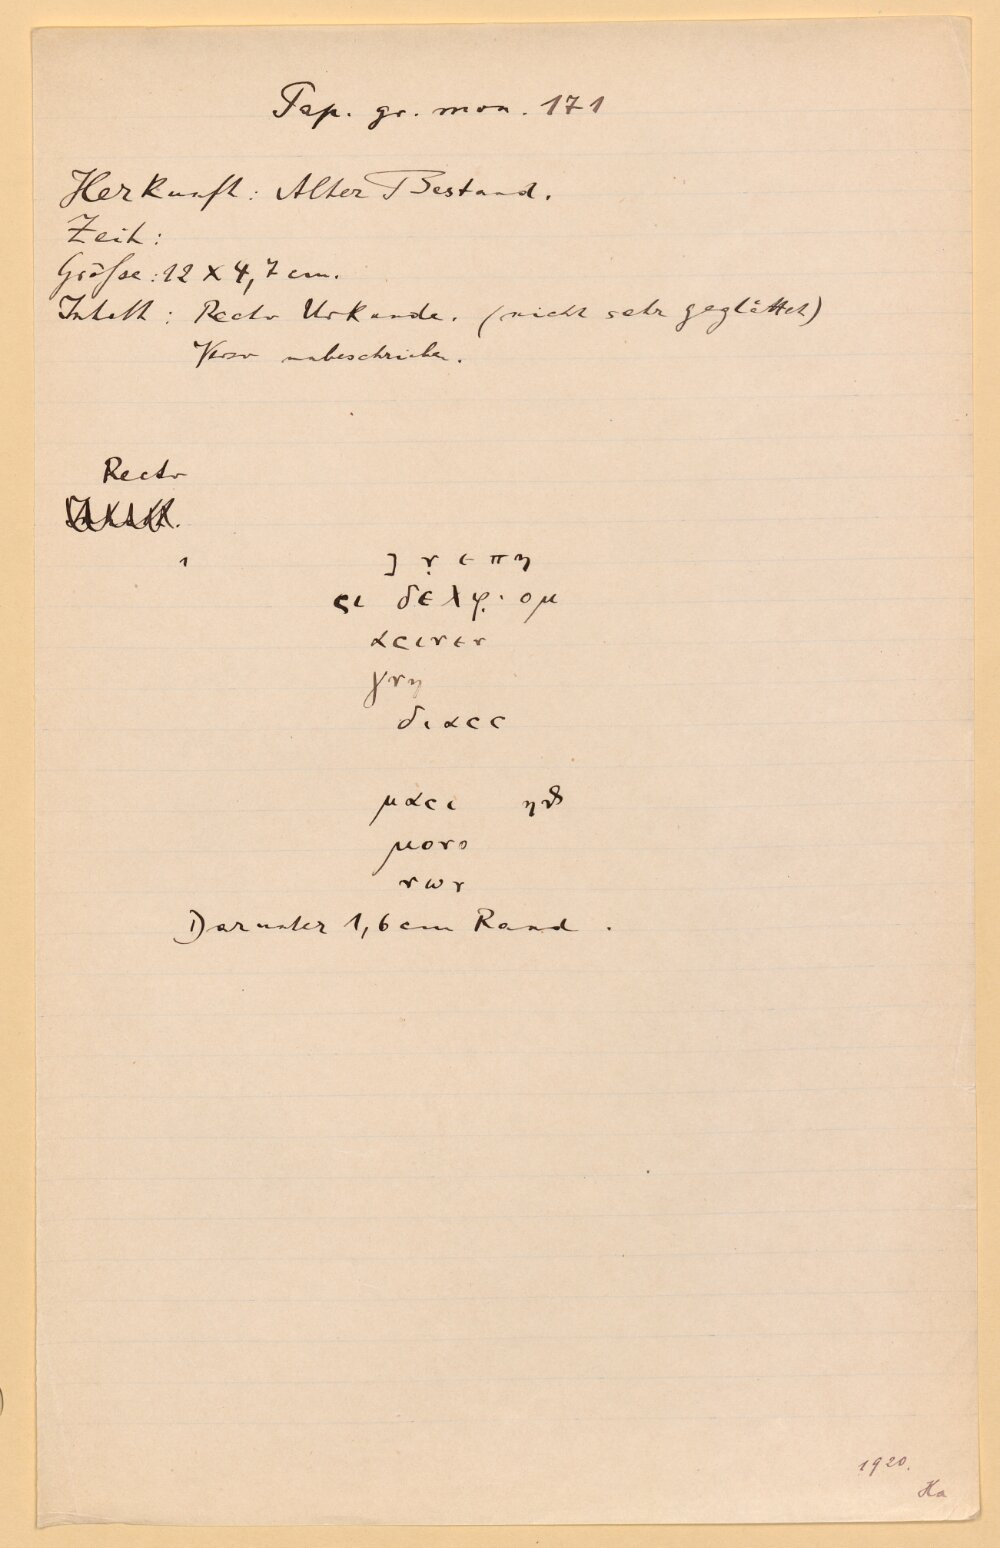 Pap. gr. mon. 171
Herkunft: Alter Bestand.
Zeit:
Größe: 12 x 4,7 cm.
Inhalt: Recto Urkunde. (nicht sehr geglättet)
Verso unbeschrieben.
Recto
1 ] ν̣ ε πη
ςι δελφ̣. ομ
αϲινεν
γνη
διαϲϲ
μαϲι ηϑ
μονο
νων
Darunter 1,6 cm Rand.
1920.
Ha